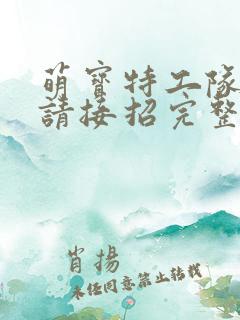 萌寶特工隊
請接招完整
肖揚
未經同意禁止轉載